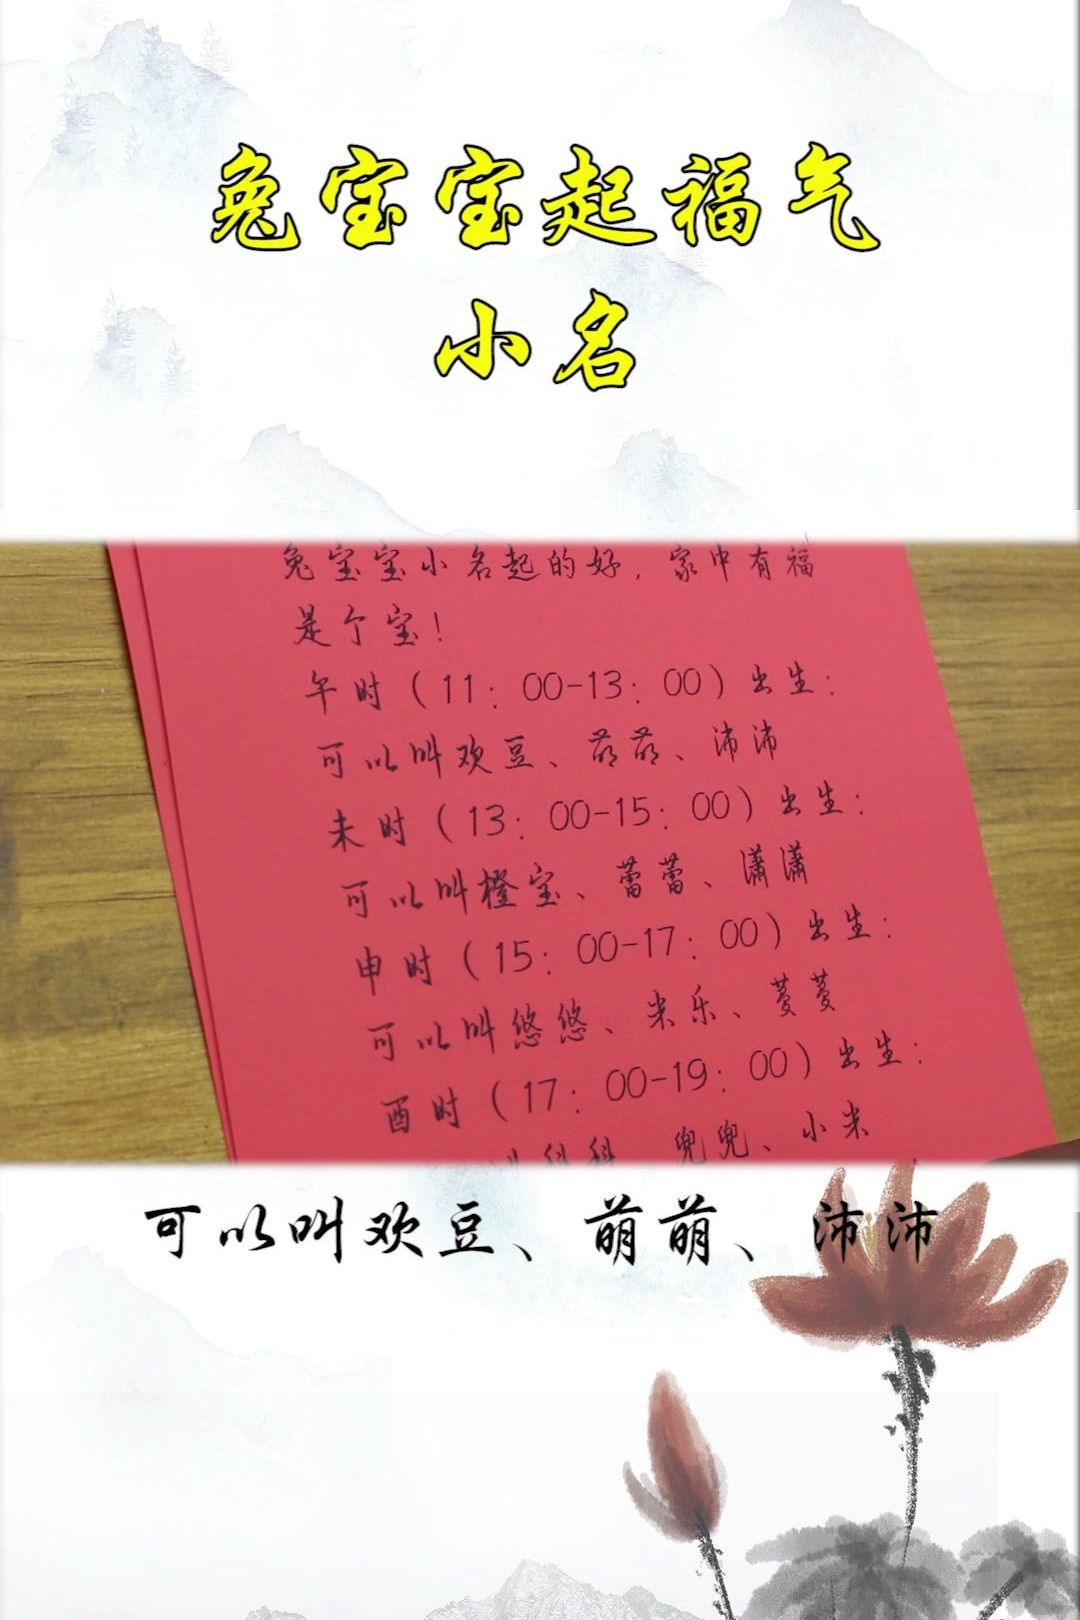 兔宝宝起福气
小名
兔宝宝小名起的好，家中有福
是个宝！
午时（11：00-13：00）出生：
可以叫欢豆、萌萌、沛沛
未时（13：00-15：00）出生：
可以叫橙宝、蕾蕾、潇潇
申时（15：00-17：00）出生：
可以叫悠悠、米乐、蔓蔓
酉时（17：00-19：00）出生：
叫科科、兜兜、小米
可以叫欢豆、萌萌、沛沛